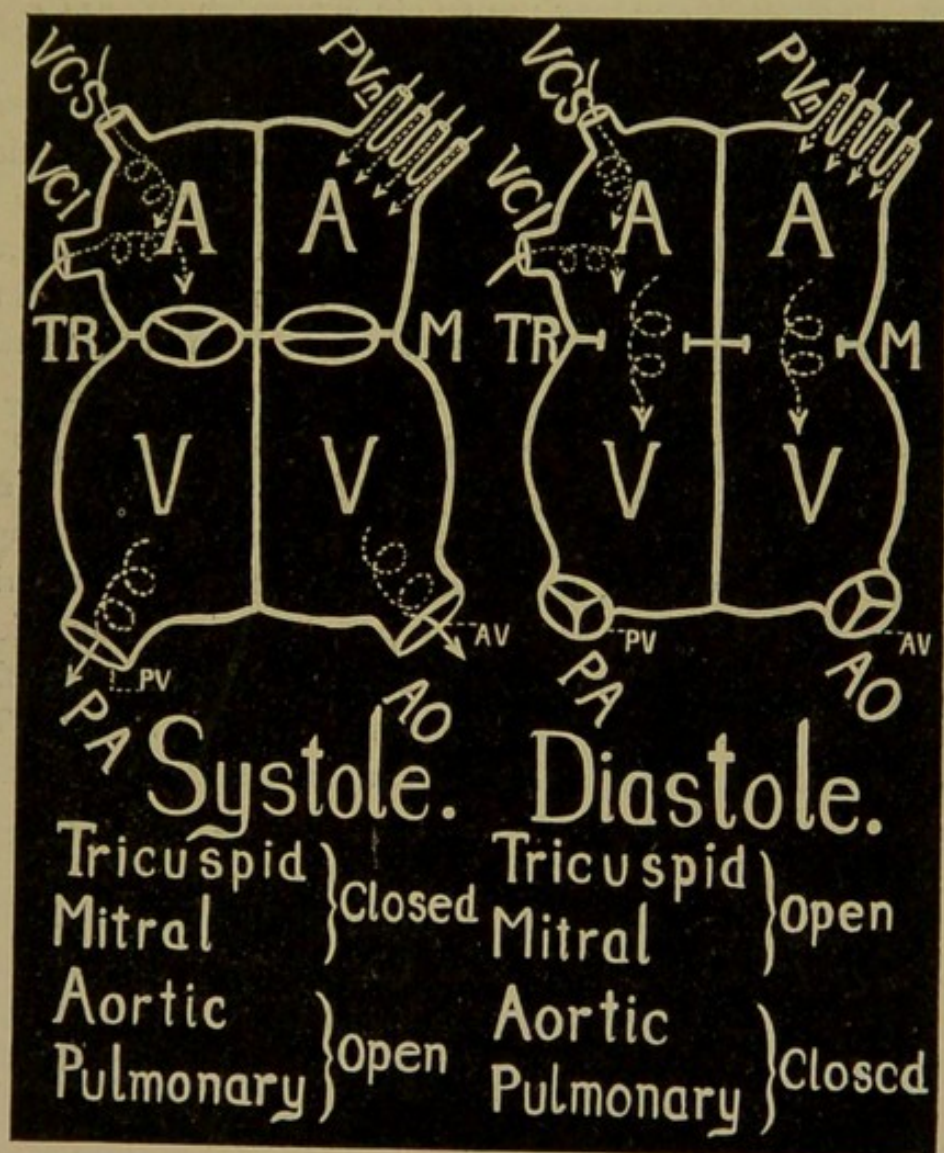 VCS
PVn
VCI
A A
TR M
V V
PV
AV
PA
AO
Systole.
Tricuspid
Mitral
Closed
Aortic
Pulmonary
Open
VCS
PVn
VCI
A A
TR M
V V
PV
AV
PA
AO
Diastole.
Tricuspid
Mitral
Open
Aortic
Pulmonary
Closcd